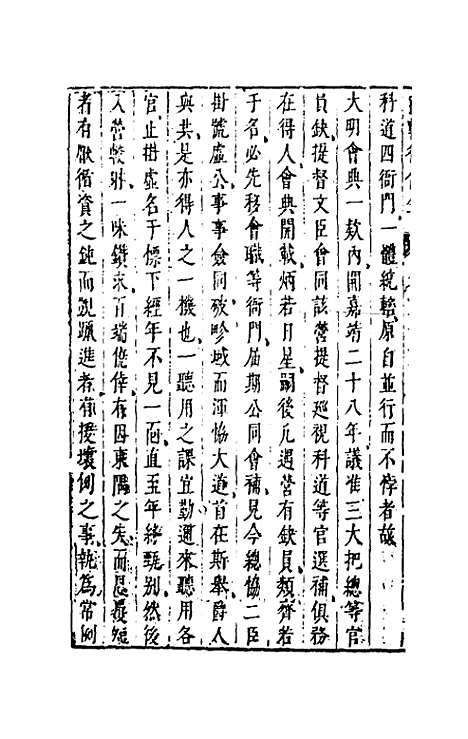 科道四衙門一體統轄原自並行而不悖者故
大明會典一欵內開嘉靖二十八年議准三大把總等官
員缺提督文臣會同該營提督廵視科道等官選補俱務
在得人會典開載炳若日星嗣後凡遇營有缺員類齊若
于名必先移會職等衙門屆期公同會補見今總協二臣
掛號虛公事事僉同破畛域而渾協大道首在斯舉爵人
與共是亦得人之一機也一聽用之課宜勤邇來聽用各
官止掛虛名于標下經年不見一面直至五年終甄別然後
入營較射一味鑽求百端僥倖有因東隅之失而
者有厭循資之鈍而躐進者有援壞例之事執為常例